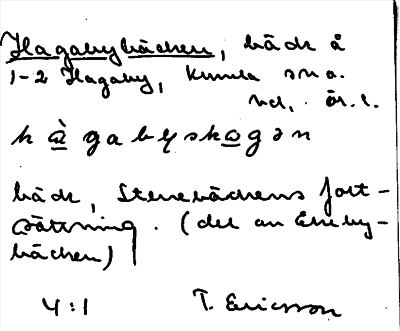 Hagabybäcken, bäck å
1-2 Hagaby, Kumla sn o.
hd, Ör. l.
hàgabyskogən
bäck, Stenebäckens fort-
sättning. (del av Eneby-
bäcken)
4:1 T. Ericsson